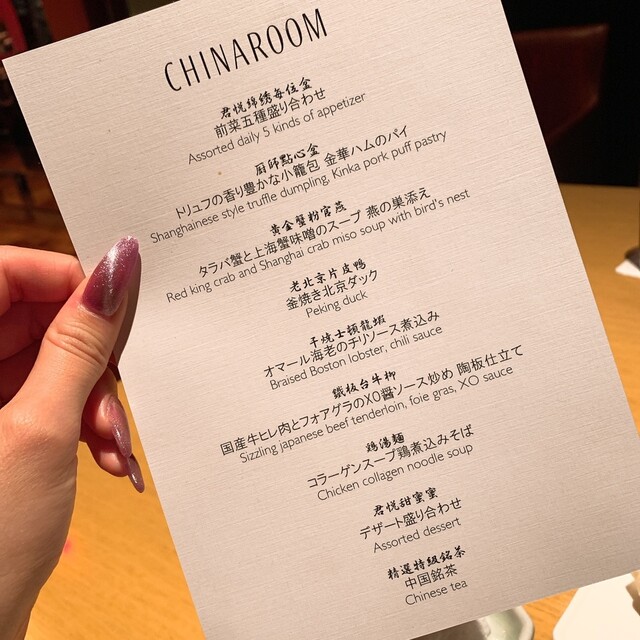 CHINAROOM
君悦綿绣每位盆
前菜五種盛り合わせ
Assorted daily 5 kinds of appetizer
厨師點心盆
トリュフの香り豊かな小籠包 金華ハムのパイ
Shanghainese style truffle dumpling, Kinka pork puff pastry
黄金蟹粉官燕
タラバ蟹と上海蟹味噌のスープ 燕の巣添え
Red king crab and Shanghai crab miso soup with bird's nest
老北京片皮鴨
釜焼き北京ダック
Peking duck
干焼士頓龍蝦
オマール海老のチリソース煮込み
Braised Boston lobster, chili sauce
鐵板台牛柳
国産牛ヒレ肉とフォアグラのXO醤ソース炒め 陶板仕立て
Sizzling japanese beef tenderloin, foie gras, XO sauce
鶏湯麺
コラーゲンスープ鶏煮込みそば
Chicken collagen noodle soup
君悦甜蜜蜜
デザート盛り合わせ
Assorted dessert
精選特級銘茶
中国銘茶
Chinese tea